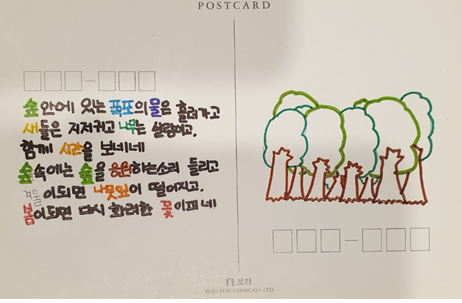 POSTCARD
숲 안에 있는 폭포의 물은 흘러가고
새들은 지저귀고 나무는 살랑이고,
함께 시간을 보내네
숲속에는 숲을 응원하는소리 들리고
겨울이되면 나뭇잎이 떨어지고,
봄이되면 다시 화려한 꽃이피네